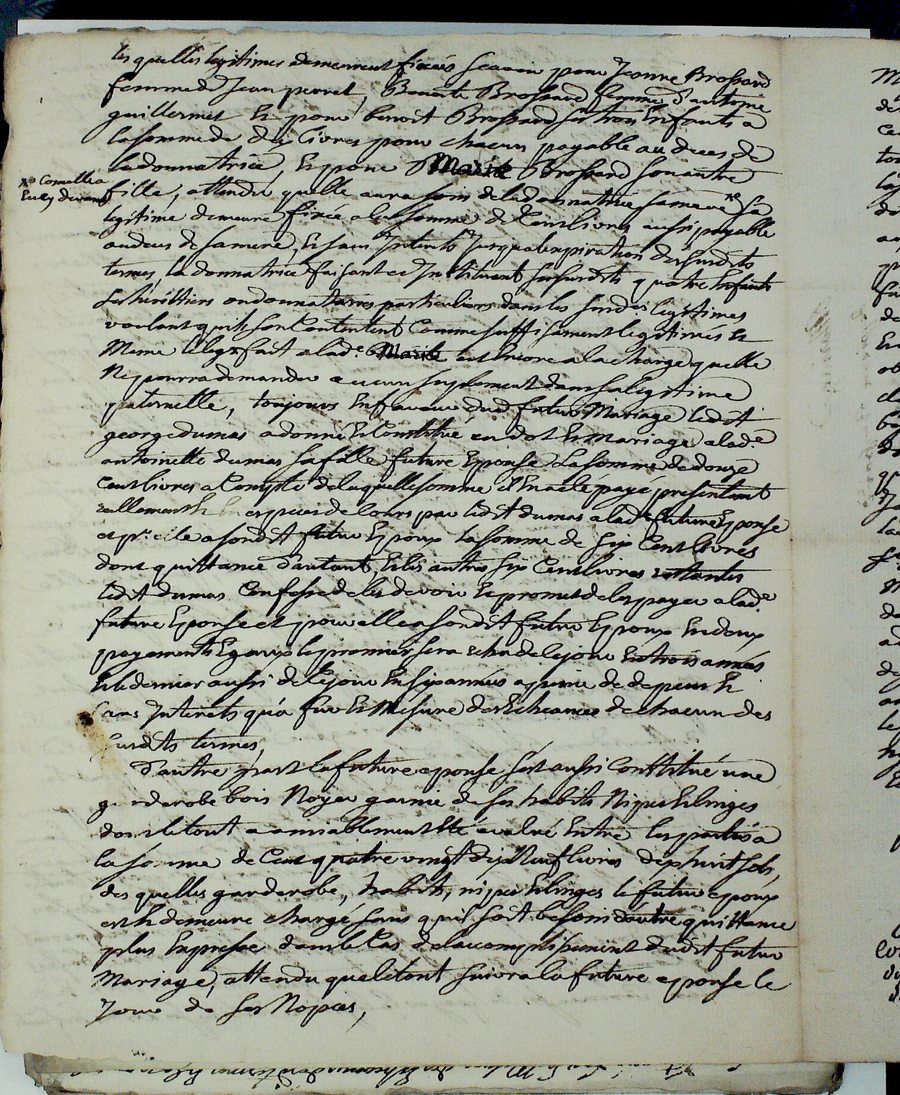 lesquelles legitimes demeurent fixées scavoir pour Jeanne Brossard
femme de Jean perret, Benoite Brossard femme d'antoine
guillermet et pour benoit Brossard ses trois Enfants a
la somme de dix livres pour chacun payable au deces de
la donnatrice, Et pour Marie Brossard son autre
fille, attendu quelle aura soin de la donnatrice sa mere sa
legitime demeure fixée a la somme de Cent livres aussi payable
au deces de sa mere, Et sans Interets Jusqua lexpiration des susdits
termes, la donnatrice faisant et Instituant ses susdits quatre Enfants
ses heritiers ou donnataires particuliers dans les susd. legitimes
voulant quils sen Contentent Comme suffisament legitimés Et
Meme le legs fait a lad. Marie est Encore a la charge quelle
Ne pourra demander aucun suplement dans sa legitime
paternelle, toujours En faveur dud. futur Mariage ledit
george dumas a donné Et Constitué en dot Et Mariage a lade
antoinette dumas sa fille future Epouse La somme de douze
Cent livres a Compte de laquelle somme il En a eté payé presentement
reellement Et En especes de Cours par ledit dumas a lade future Epouse
et pr. elle a sondit futur Epoux la somme de six Cent livres
dont quittance d'autant, Et les autres six Cent livres restantes
ledit dumas Confesse de les devoir Et promet de les payer a lade
future Epouse et pour elle a sondit futur Epoux En deux
payements Egaux le premier sera echu de ce jour En trois années
Et le dernier aussi de ce jour En six années a peine de depens Et
sans Interets qu'a fur Et Mesure des Echeances de chacun des
susdits termes,
D'autre part la future epouse s'est aussi Constitué une
garderobe bois Noyer garnie de ses habits Nipes Et linges
dont le tout a amiablement Eté evalué Entre les parties a
la somme de Cent quatre vingt dix Neuf livres dix huit sols,
des quelles garderobe, habits, nipes Et linges le futur epoux
est Et demeure chargé sans quil soit besoin dautre quittance
plus Expresse dans le Cas de laccomplissement dudit futur
Mariage, attendu que le tout suivra la future epouse le
Jour de ses Nopces,